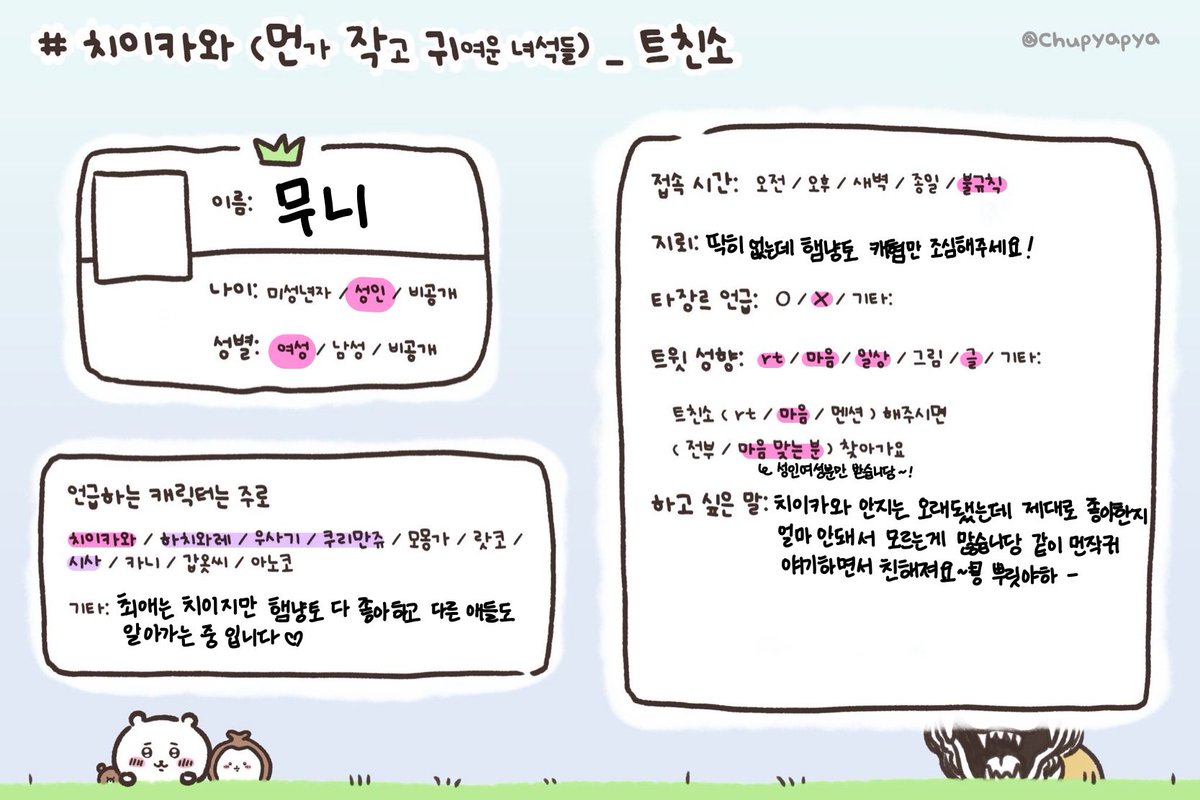 # 치이카와 (먼가 작고 귀여운 녀석들) _ 트친소
@Chupyapya
이름: 무니
나이: 미성년자 / 성인 / 비공개
성별: 여성 / 남성 / 비공개
언급하는 캐릭터는 주로
치이카와 / 하치와레 / 우사기 / 쿠리만쥬 / 모몽가 / 랏코 /
시사 / 카니 / 갑옷씨 / 아노코
기타: 최애는 치이지만 햄냥토 다 좋아하고 다른 애들도
알아가는 중 입니다♡
접속 시간: 오전 / 오후 / 새벽 / 종일 / 불규칙
지뢰: 딱히 없는데 햄냥토 캐혐만 조심해주세요!
타장르 언급: O / X / 기타:
트윗 성향: rt / 마음 / 일상 / 그림 / 글 / 기타:
트친소 ( rt / 마음 / 멘션 ) 해주시면
( 전부 / 마음 맞는 분 ) 찾아가요
↳ 성인여성분만 받습니당~!
하고 싶은 말: 치이카와 안지는 오래됐는데 제대로 좋아한지
얼마 안돼서 모르는게 많습니당 같이 먼작귀
얘기하면서 친해져요~힝 뿌릿야하 -